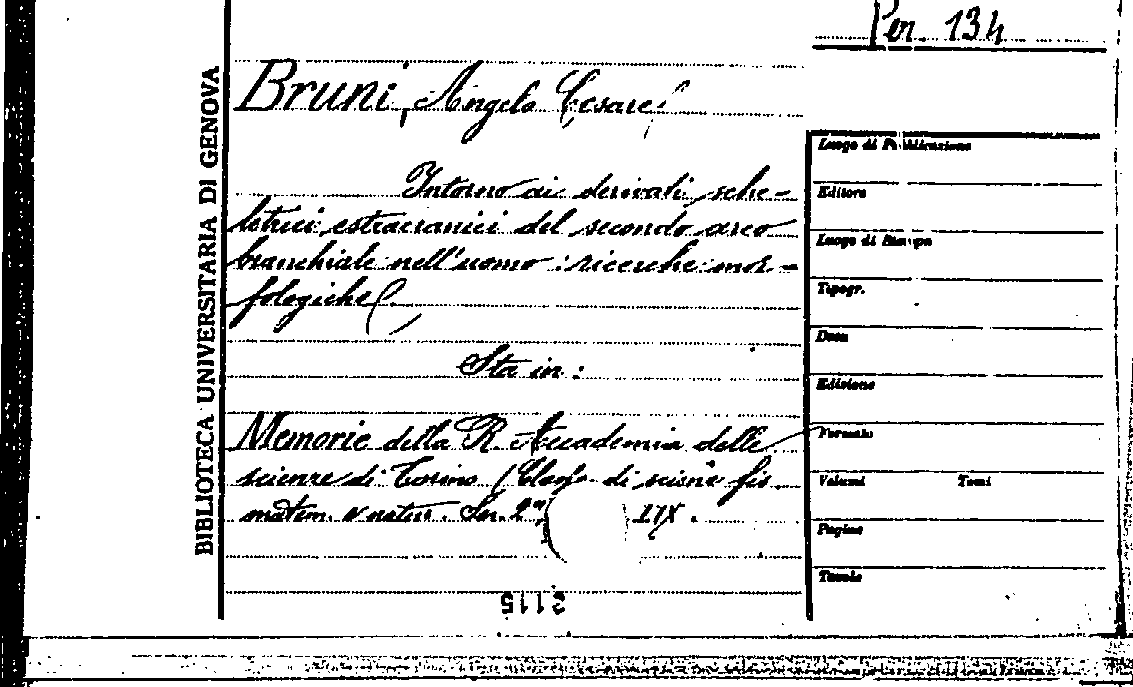 Per. 134
BIBLIOTECA UNIVERSITARIA DI GENOVA
Bruni, Angelo Cesare
Intorno ai derivati sche-
letrici estracranici del secondo arco
branchiale nell'uomo: ricerche mor-
fologiche
Sta in:
Memorie della R. Accademia delle
scienze di Torino (Classe di scienze fis.
matem. e natur. Ser. 2ª, LIX.
2115
Luogo di Pubblicazione
Editore
Luogo di Stampa
Tipogr.
Data
Edizione
Formato
Volumi Tomi
Pagine
Tavole